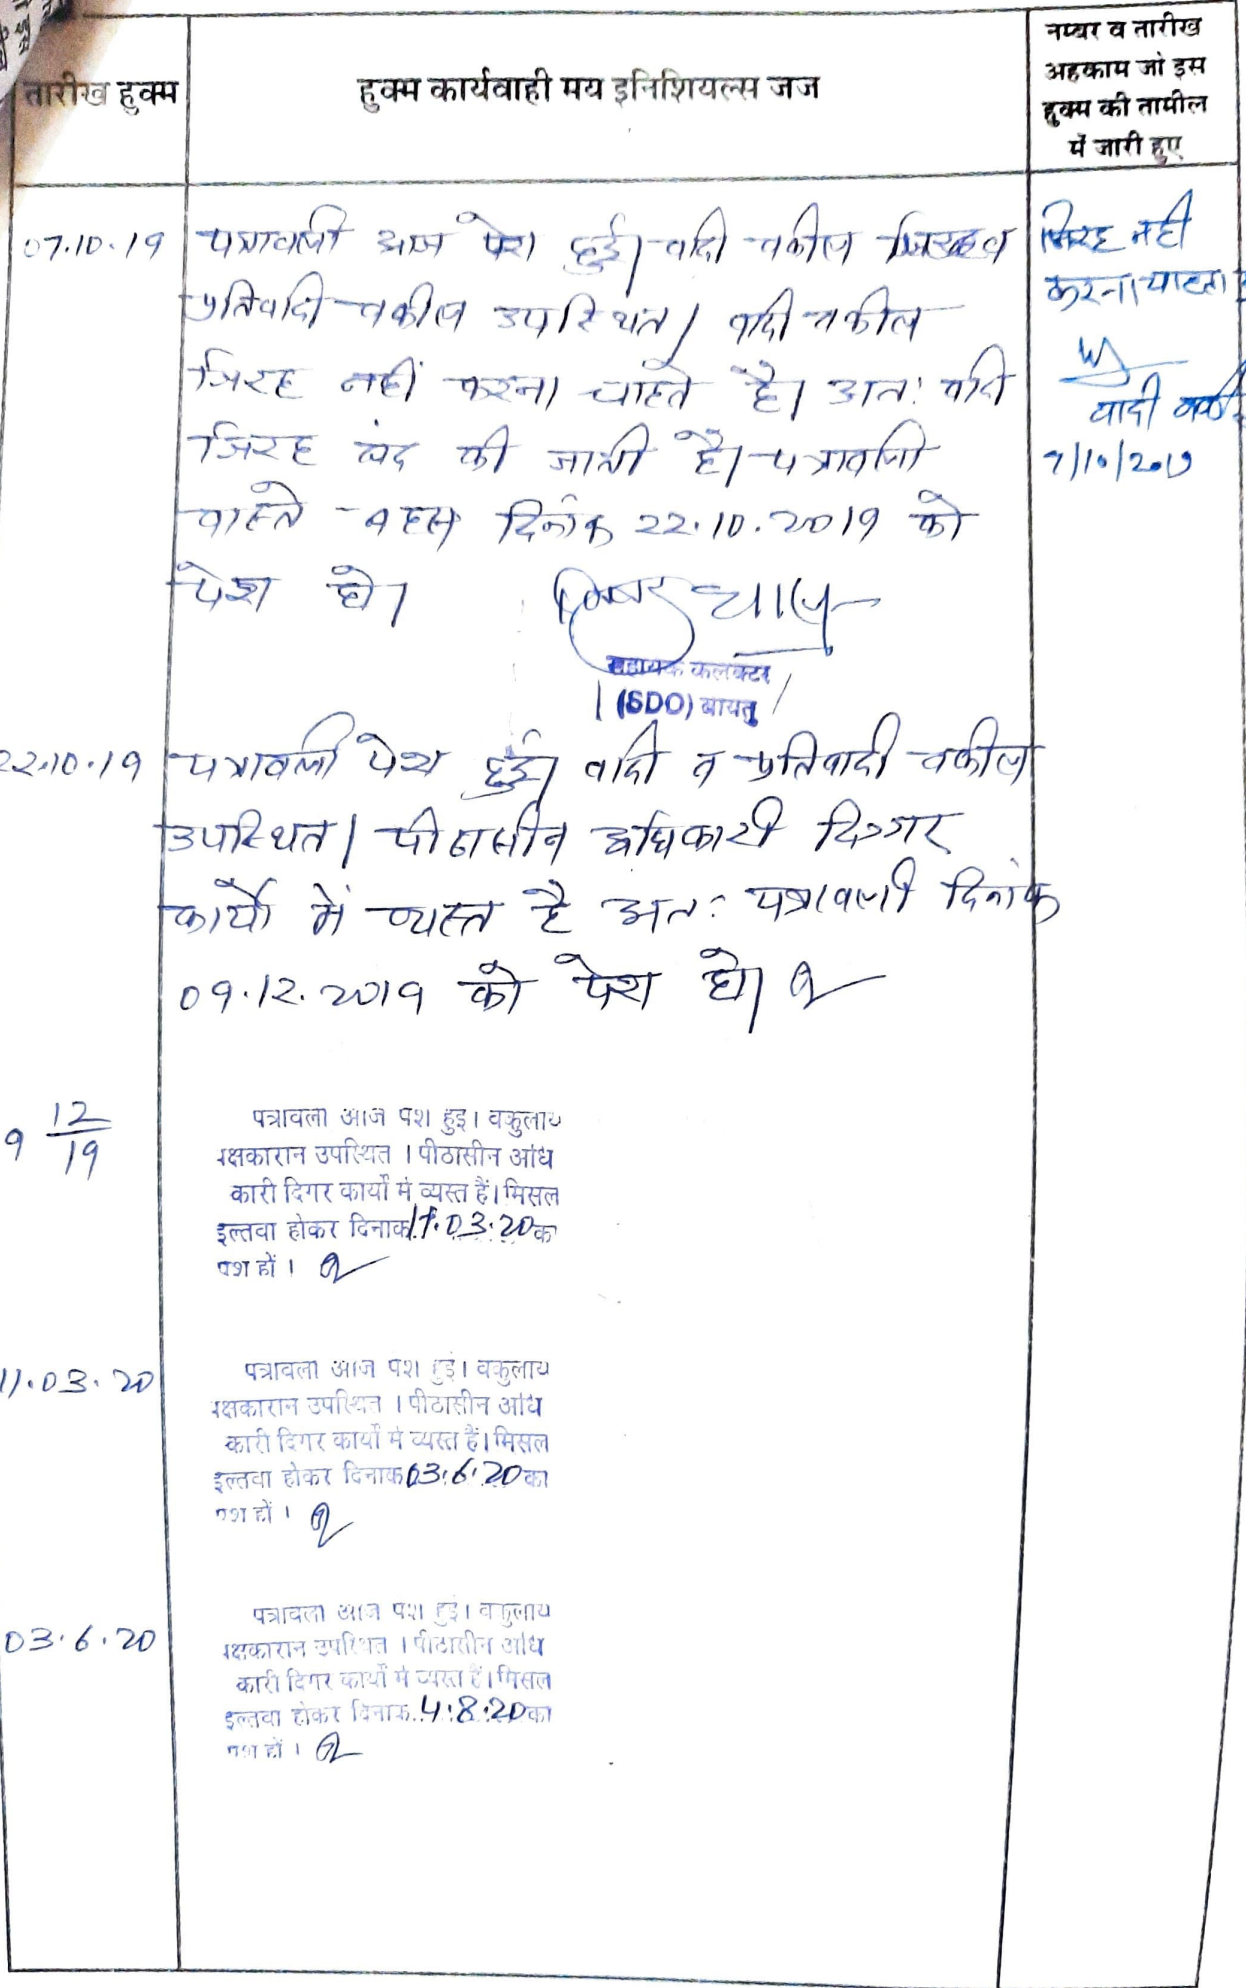 तारीख हुक्म
हुक्म कार्यवाही मय इनिशियल्स जज
नम्बर व तारीख
अहकाम जो इस
हुक्म की तामील
में जारी हुए
07.10.19
पत्रावली आज पेश हुई। वादी वकील
प्रतिवादी वकील उपस्थित। वादी वकील
जिरह नहीं करना चाहते है। अतः वादी
जिरह बंद की जाती है। पत्रावली
वास्ते बहस दिनांक 22.10.2019 को
पेश हो।
जिरह नही
करना चाहता
वादी
7/10/2019
सहायक कलक्टर
(SDO) बायतु
22.10.19
पत्रावली पेश हुई। वादी व प्रतिवादी वकील
उपस्थित। पीठासीन अधिकारी दिगर
कार्यो में व्यस्त है अतः पत्रावली दिनांक
09.12.2019 को पेश हो।
9 12/19
पत्रावला आज पश हुइ। वकुलाय
पक्षकारान उपस्थित । पीठासीन अधि
कारी दिगर कार्यों में व्यस्त हैं। मिसल
इल्तवा होकर दिनाक 11.03.20 का
पश हों ।
11.03.20
पत्रावला आज पश हुइ। वकुलाय
पक्षकारान उपस्थित । पीठासीन अधि
कारी दिगर कार्यों में व्यस्त हैं। मिसल
इल्तवा होकर दिनाक 03.6.20 का
पश हों ।
03.6.20
पत्रावला आज पश हुइ। वकुलाय
पक्षकारान उपस्थित । पीठासीन अधि
कारी दिगर कार्यों में व्यस्त हैं। मिसल
इल्तवा होकर दिनाक 4.8.20 का
पश हों ।